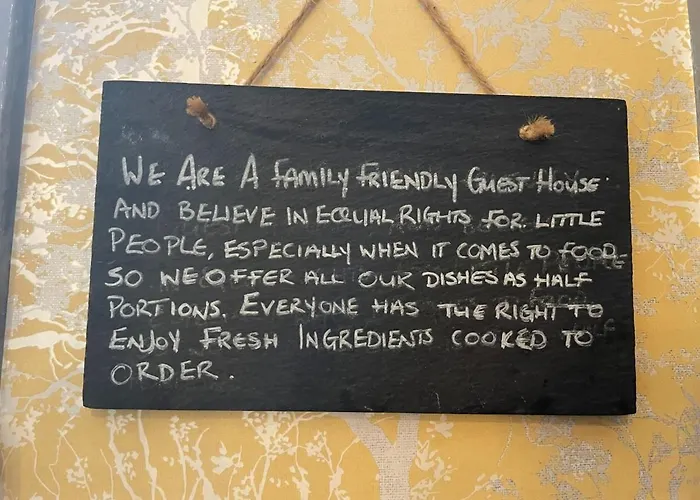 WE ARE A FAMILY FRIENDLY GUEST HOUSE
AND BELIEVE IN EQUAL RIGHTS FOR LITTLE
PEOPLE, ESPECIALLY WHEN IT COMES TO FOOD
SO WE OFFER ALL OUR DISHES AS HALF
PORTIONS. EVERYONE HAS THE RIGHT TO
ENJOY FRESH INGREDIENTS COOKED TO
ORDER.